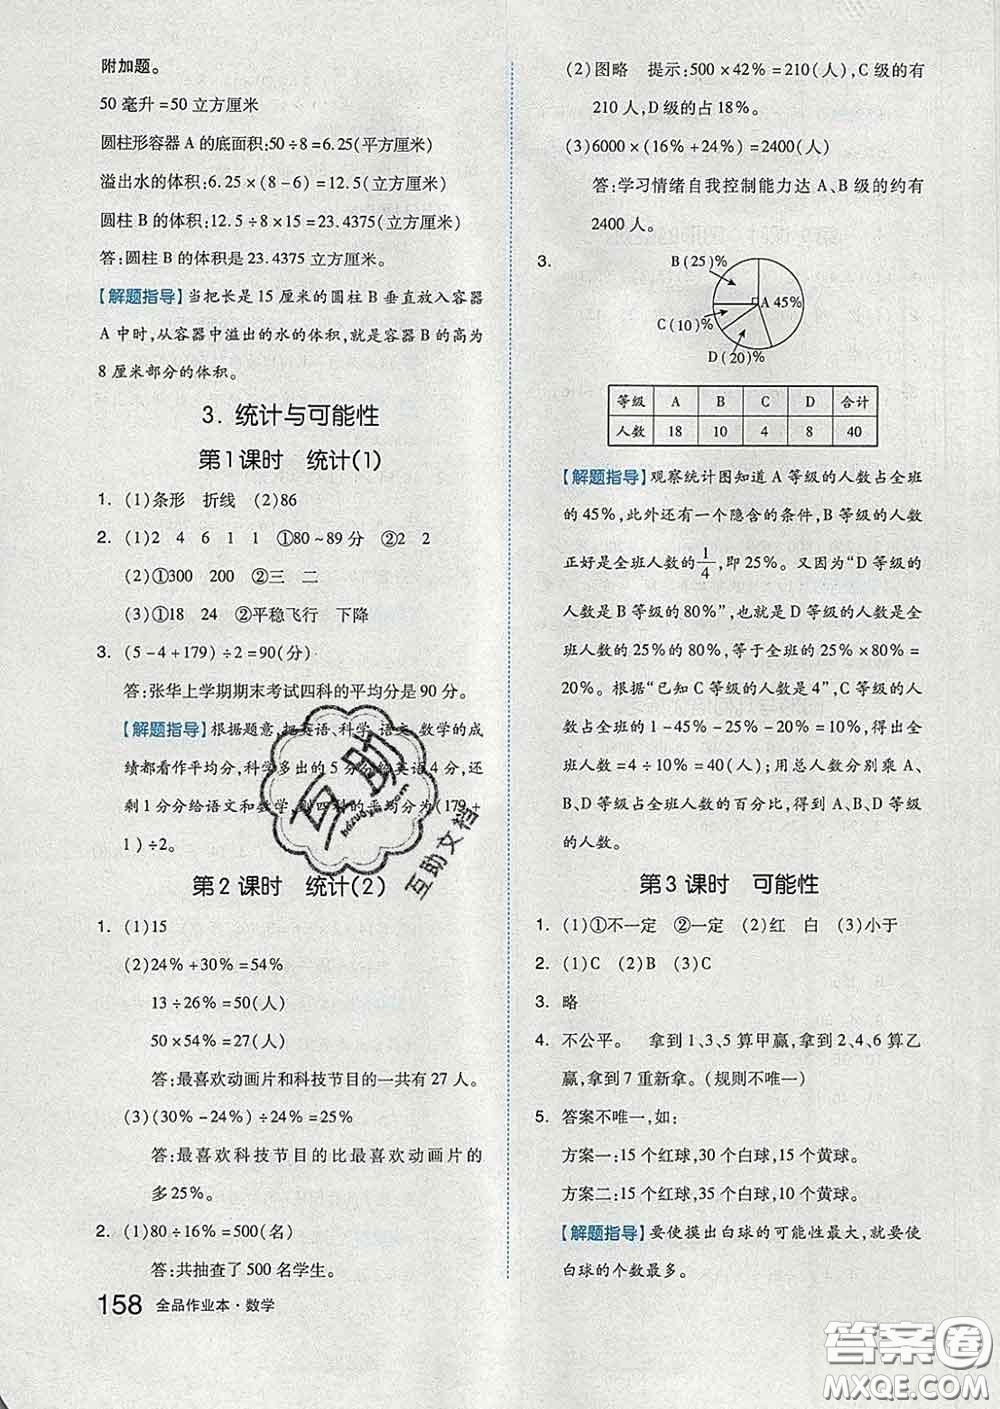 附加题。
50 毫升 =50 立方厘米
圆柱形容器 A 的底面积:50÷8=6.25(平方厘米)
溢出水的体积:6.25×(8-6)=12.5(立方厘米)
圆柱 B 的体积:12.5÷8×15=23.4375(立方厘米)
答:圆柱 B 的体积是 23.4375 立方厘米。
【解题指导】当把长是 15 厘米的圆柱 B 垂直放入容器
A 中时,从容器中溢出的水的体积,就是容器 B 的高为
8 厘米部分的体积。
3. 统计与可能性
第 1 课时 统计(1)
1. (1)条形 折线 (2)86
2. (1)2 4 6 1 1 ①80~89 分 ②2 2
(2)①300 200 ②三 二
(3)①18 24 ②平稳飞行 下降
3. (5-4+179)÷2=90(分)
答:张华上学期期末考试四科的平均分是 90 分。
【解题指导】根据题意,把英语、科学、语文、数学的成
绩都看作平均分,科学多出的 5 分分给英语 4 分,还
剩 1 分分给语文和数学,则四科的平均分为(179+
1)÷2。
第 2 课时 统计(2)
1. (1)15
(2)24%+30%=54%
13÷26%=50(人)
50×54%=27(人)
答:最喜欢动画片和科技节目的一共有 27 人。
(3)(30%-24%)÷24%=25%
答:最喜欢科技节目的比最喜欢动画片的
多 25%。
2. (1)80÷16%=500(名)
答:共抽查了 500 名学生。
158 全品作业本·数学
(2)图略 提示:500×42%=210(人),C 级的有
210 人,D 级的占 18%。
(3)6000×(16%+24%)=2400(人)
答:学习情绪自我控制能力达 A、B 级的约有
2400 人。
3.
B(25)%
A 45%
C(10)%
D(20)%
等级 A B C D 合计
人数 18 10 4 8 40
【解题指导】观察统计图知道 A 等级的人数占全班
的 45%,此外还有一个隐含的条件,B 等级的人数
正好是全班人数的1/4,即 25%。又因为“D 等级的
人数是 B 等级的 80%”,也就是 D 等级的人数是全
班人数的 25%的 80%,等于全班的 25%×80%=
20%。根据“已知 C 等级的人数是 4”,C 等级的人数
占全班的 1-45%-25%-20%=10%,得出全班的
人数=4÷10%=40(人);用总人数分别乘 A、
B、D 等级占全班人数的百分比,得到 A、B、D 等级的
人数。
第 3 课时 可能性
1. (1)①不一定 ②一定 (2)红 白 (3)小于
2. (1)C (2)B (3)C
3. 略
4. 不公平。 拿到 1、3、5 算甲赢,拿到 2、4、6 算乙
赢,拿到 7 重新拿。(规则不唯一)
5. 答案不唯一,如:
方案一:15 个红球,30 个白球,15 个黄球。
方案二:15 个红球,35 个白球,10 个黄球。
【解题指导】要使摸出白球的可能性最大,就要使
白球的个数最多。
互助
互助文档
答案卷
MXQE.COM